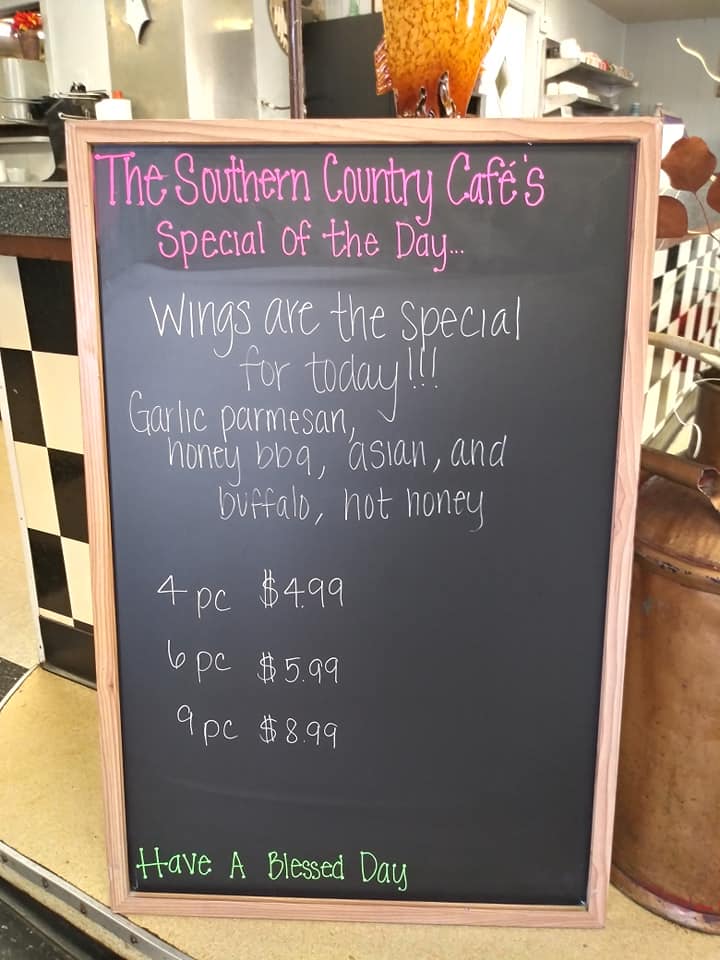 The Southern Country Café's
Special of the Day...
Wings are the special
for today!!!
Garlic parmesan,
honey bbq, asian, and
buffalo, hot honey
4 pc $4.99
6 pc $5.99
9 pc $8.99
Have A Blessed Day